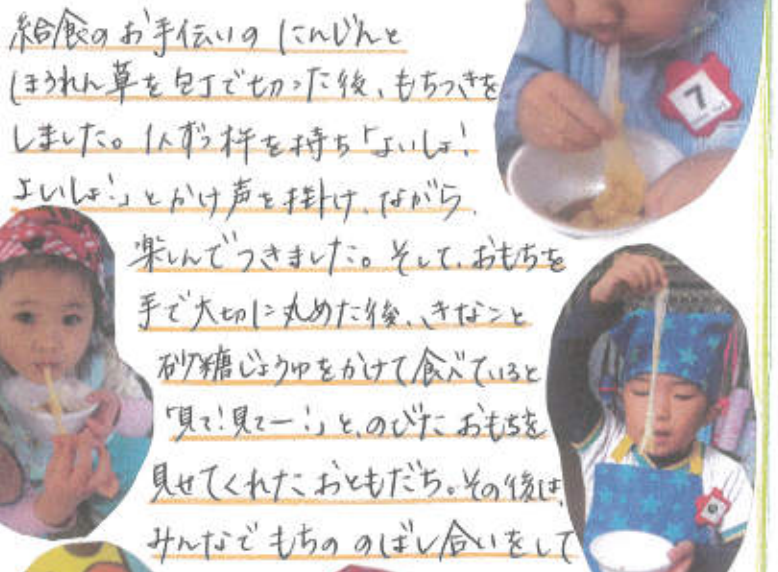 給食のお手伝いの にんじんと
ほうれん草を包丁で切った後、もちつきを
しました。1人ずつ杵を持ち「よいしょ!
よいしょ!」とかけ声を掛け、ながら、
楽しんでつきました。そして、おもちを
手で大切に丸めた後、きなこと
砂糖じょうゆをかけて食べていると
「見て!見てー!」と、のびた おもちを
見せてくれた おともだち。その後は、
みんなで もちの のばし合いをして
7